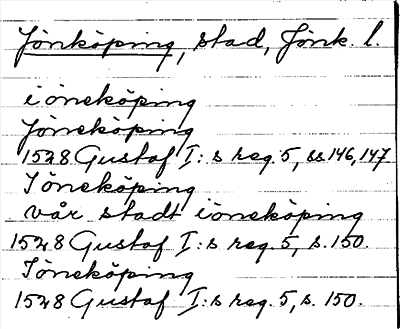 Jönköping, stad, Jönk. l.
i öneköping
Jöneköping
1528 Gustaf I:s reg. 5, ss 146, 147
Iöneköping
vår stadt iöneköping
1528 Gustaf I:s reg. 5, s. 150.
Iöneköping
1528 Gustaf I:s reg. 5, s. 150.